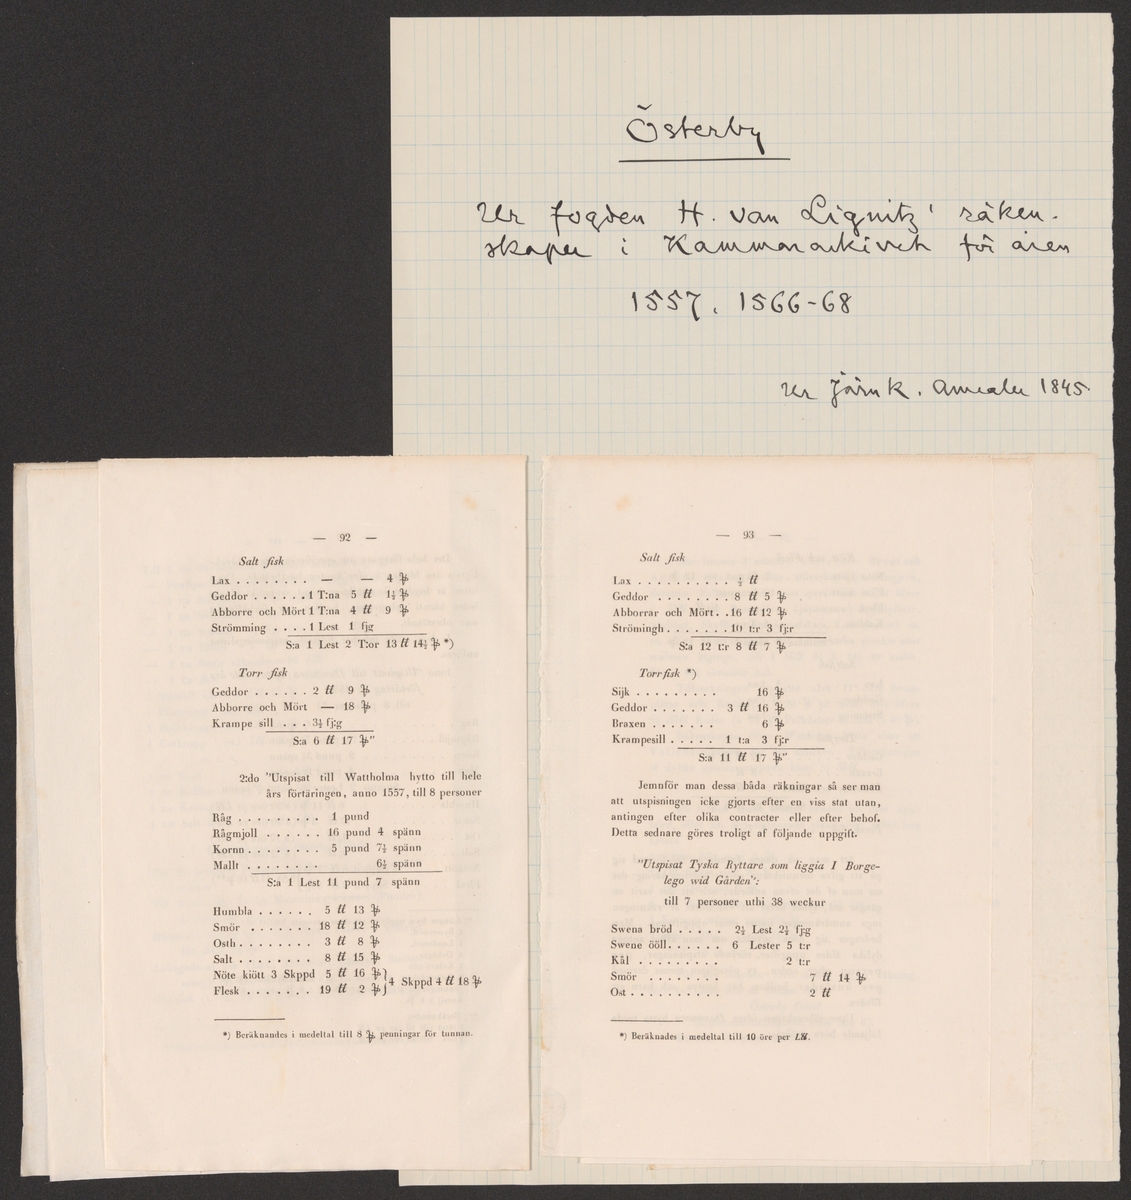 Österby
Ur fogden H. van Lignitz' räken-
skaper i Kammararkivet för åren
1557, 1566-68
Ur Järnk. Annaler 1845.
— 92 —
Salt fisk
Lax . . . . . . . . — — 4 ℔
Geddor . . . . . . 1 T:na 5 tt 1½ ℔
Abborre och Mört 1 T:na 4 tt 9 ℔
Strömming . . . . 1 Lest 1 fjg
S:a 1 Lest 2 T:or 13 tt 14½ ℔ *)
Torr fisk
Geddor . . . . . . 2 tt 9 ℔
Abborre och Mört — 18 ℔
Krampe sill . . . 3½ fj:g
S:a 6 tt 17 ℔"
2:do "Utspisat till Wattholma hytto till hele
års förtäringen, anno 1557, till 8 personer
Råg . . . . . . . . . 1 pund
Rågmjoll . . . . . . 16 pund 4 spänn
Kornn . . . . . . . . 5 pund 7½ spänn
Mallt . . . . . . . . 6½ spänn
S:a 1 Lest 11 pund 7 spänn
Humbla . . . . . . 5 tt 13 ℔
Smör . . . . . . . 18 tt 12 ℔
Osth . . . . . . . . 3 tt 8 ℔
Salt . . . . . . . . 8 tt 15 ℔
Nöte kiött 3 Skppd 5 tt 16 ℔ } 4 Skppd 4 tt 18 ℔
Flesk . . . . . . . 19 tt 2 ℔ }
*) Beräknandes i medeltal till 8 ℔ penningar för tunnan.
— 93 —
Salt fisk
Lax . . . . . . . . . . ½ tt
Geddor . . . . . . . . 8 tt 5 ℔
Abborrar och Mört . . 16 tt 12 ℔
Strömingh . . . . . . . 10 t:r 3 fj:r
S:a 12 t:r 8 tt 7 ℔
Torr fisk *)
Sijk . . . . . . . . . 16 ℔
Geddor . . . . . . . 3 tt 16 ℔
Braxen . . . . . . . 6 ℔
Krampesill . . . . . 1 t:a 3 fj:r
S:a 11 tt 17 ℔"
Jemnför man dessa båda räkningar så ser man
att utspisningen icke gjorts efter en viss stat utan,
antingen efter olika contracter eller efter behof.
Detta sednare göres troligt af följande uppgift.
"Utspisat Tyska Ryttare som liggia I Borge-
lego wid Gården":
till 7 personer uthi 38 weckur
Swena bröd . . . . . 2½ Lest 2½ fj:g
Swene ööll . . . . . . 6 Lester 5 t:r
Kål . . . . . . . . . 2 t:r
Smör . . . . . . . . 7 tt 14 ℔
Ost . . . . . . . . . . 2 tt
*) Beräknades i medeltal till 10 öre per L℔.